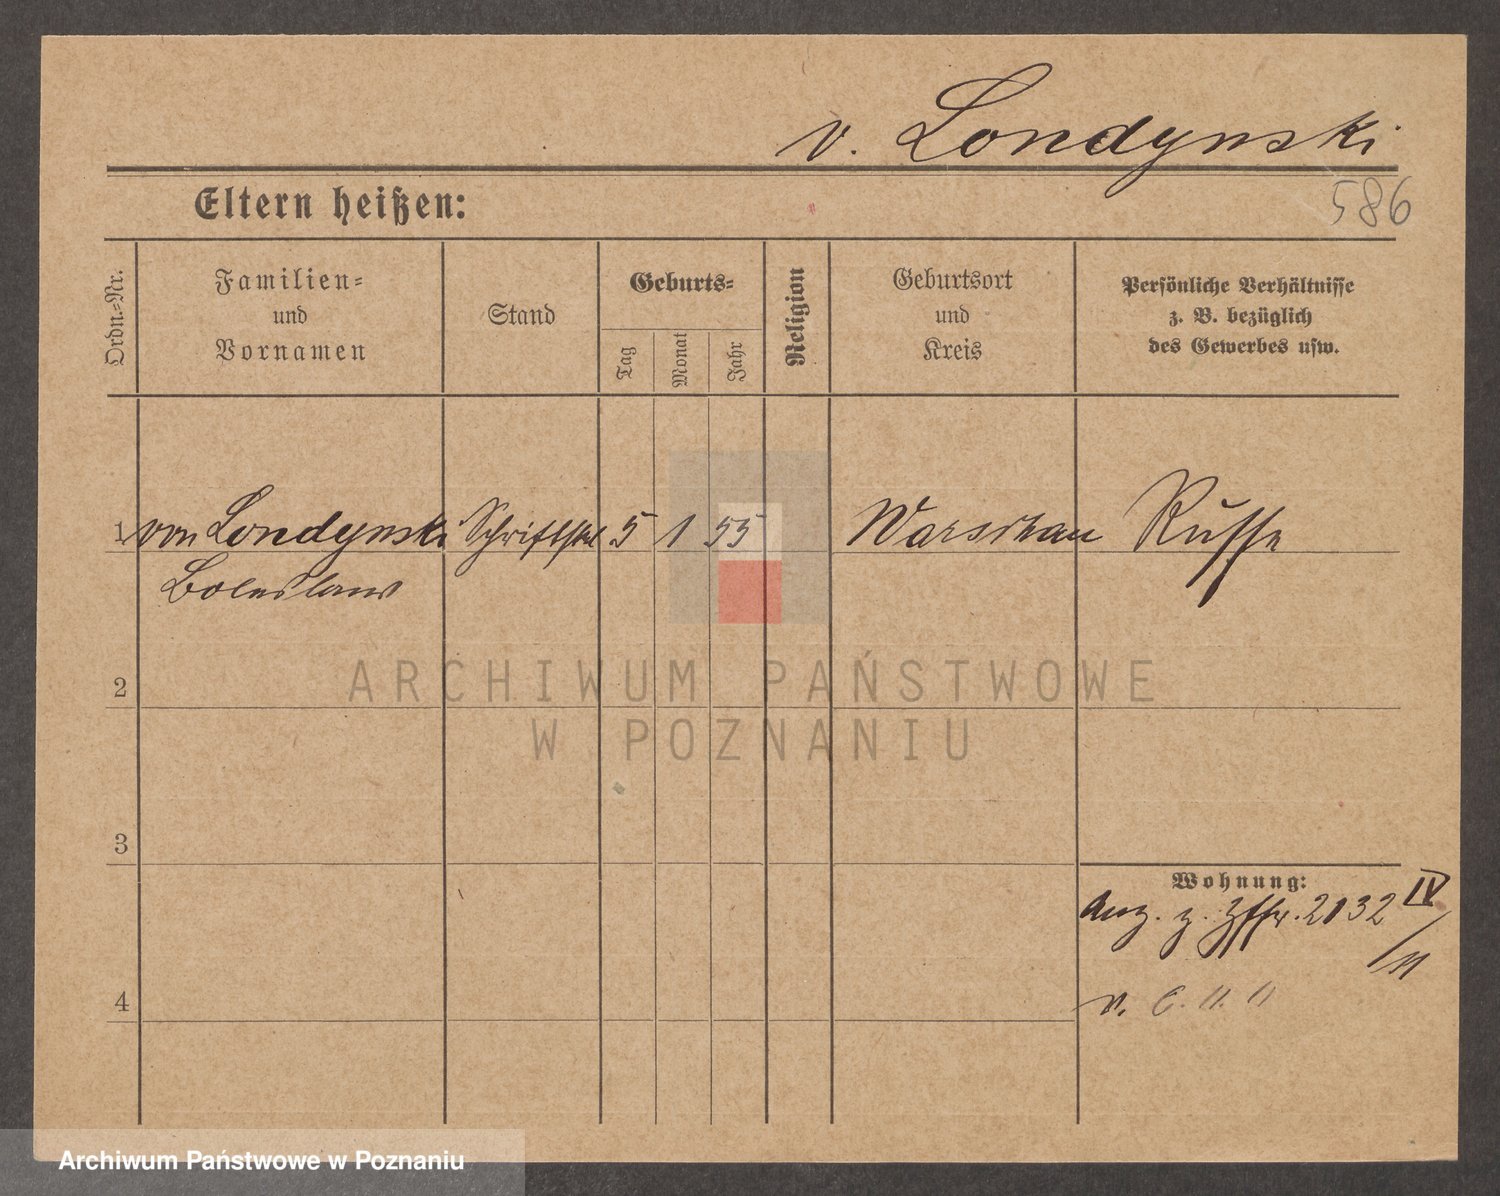 v. Londynski
586
Eltern heißen:
Ordn.-Nr.
Familien-
und
Vornamen
Stand
Geburts-
Tag
Monat
Jahr
Religion
Geburtsort
und
Kreis
Persönliche Verhältnisse
z. B. bezüglich
des Gewerbes usw.
1 von Londynski Schriftstel 5 1 55 Warschau Russe
Boleslaus
ARCHIWUM PAŃSTWOWE
W POZNANIU
2
3
Wohnung:
Anz. z. 2132 IV
/11
4
v. 6. 11. 11
Archiwum Państwowe w Poznaniu